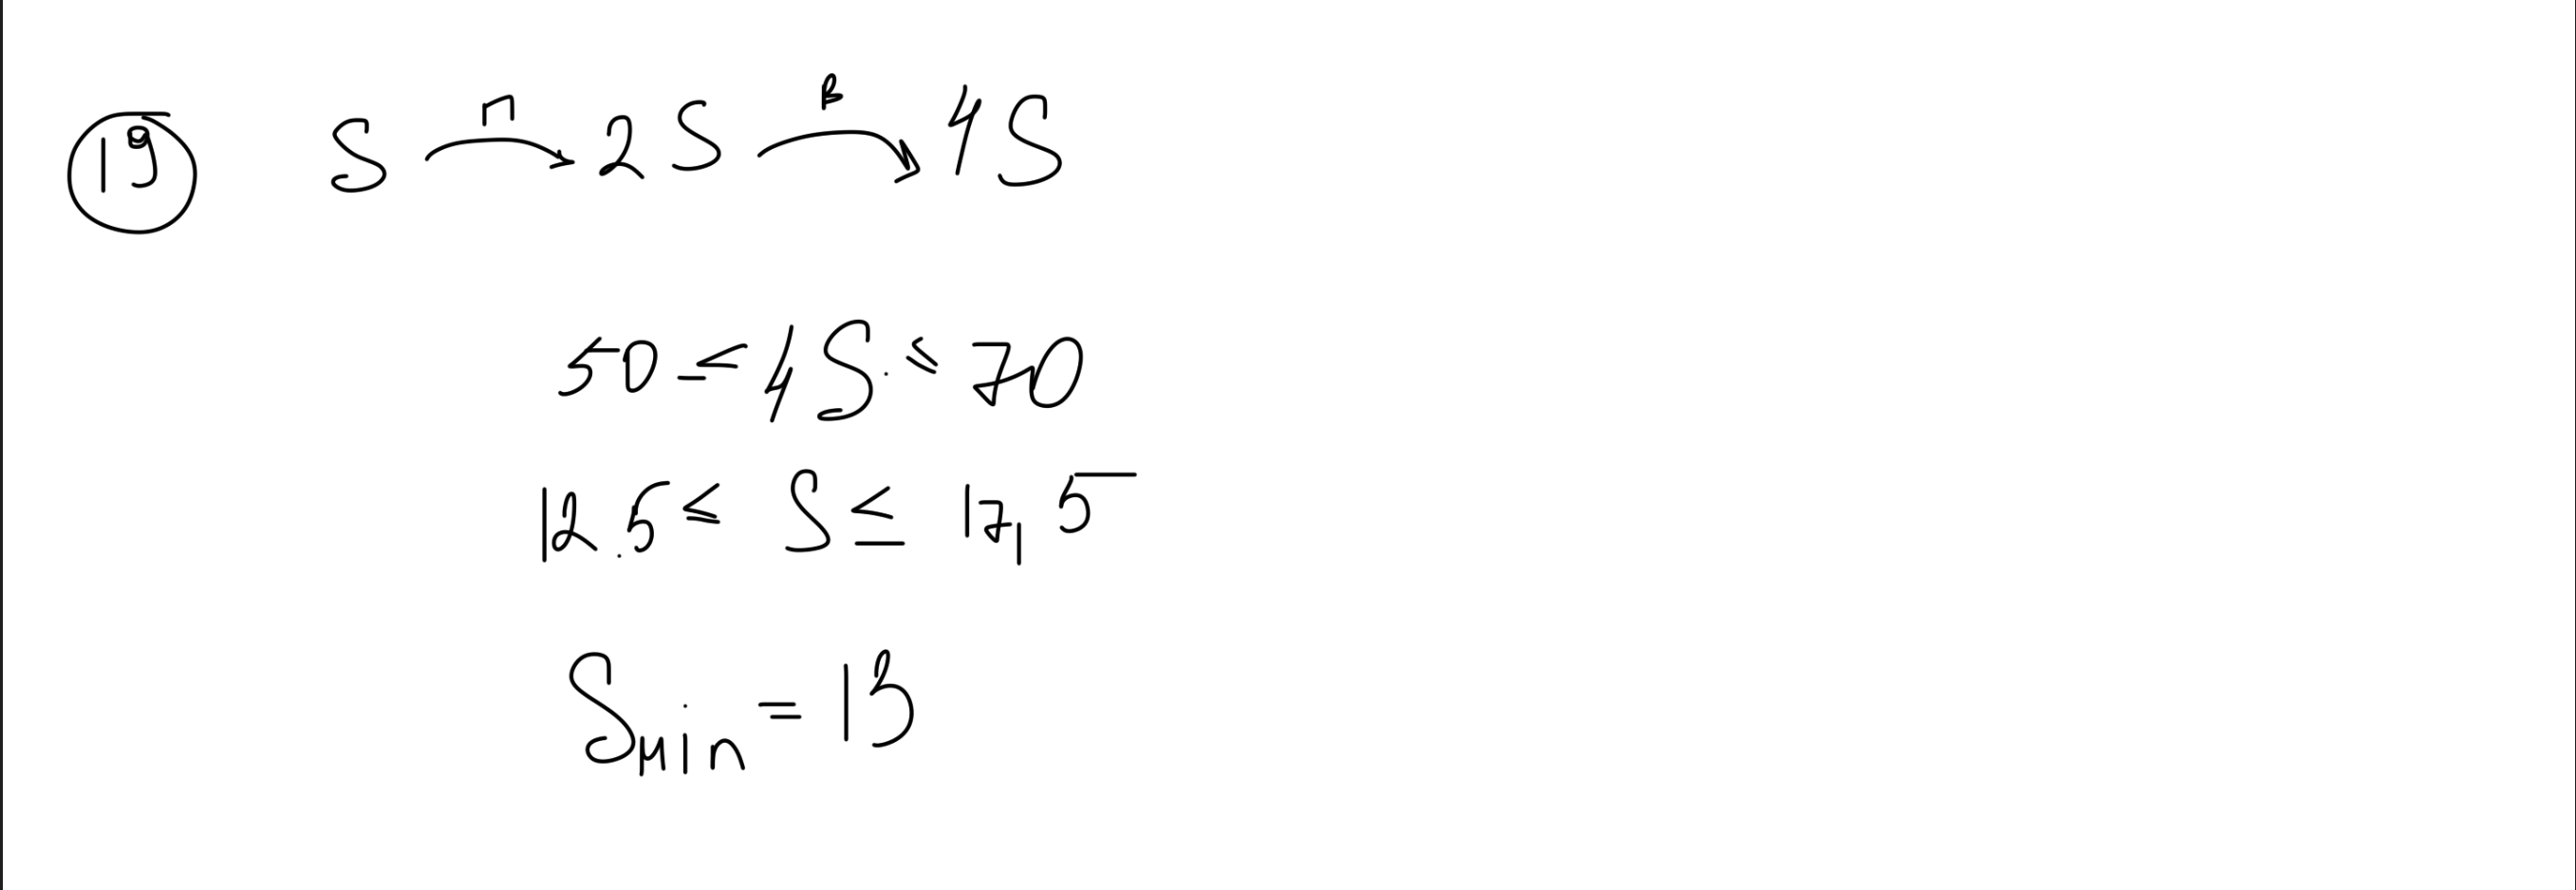 19 S П 2S В 4S
50 ≤ 4S ≤ 70
12.5 ≤ S ≤ 17,5
Smin = 13